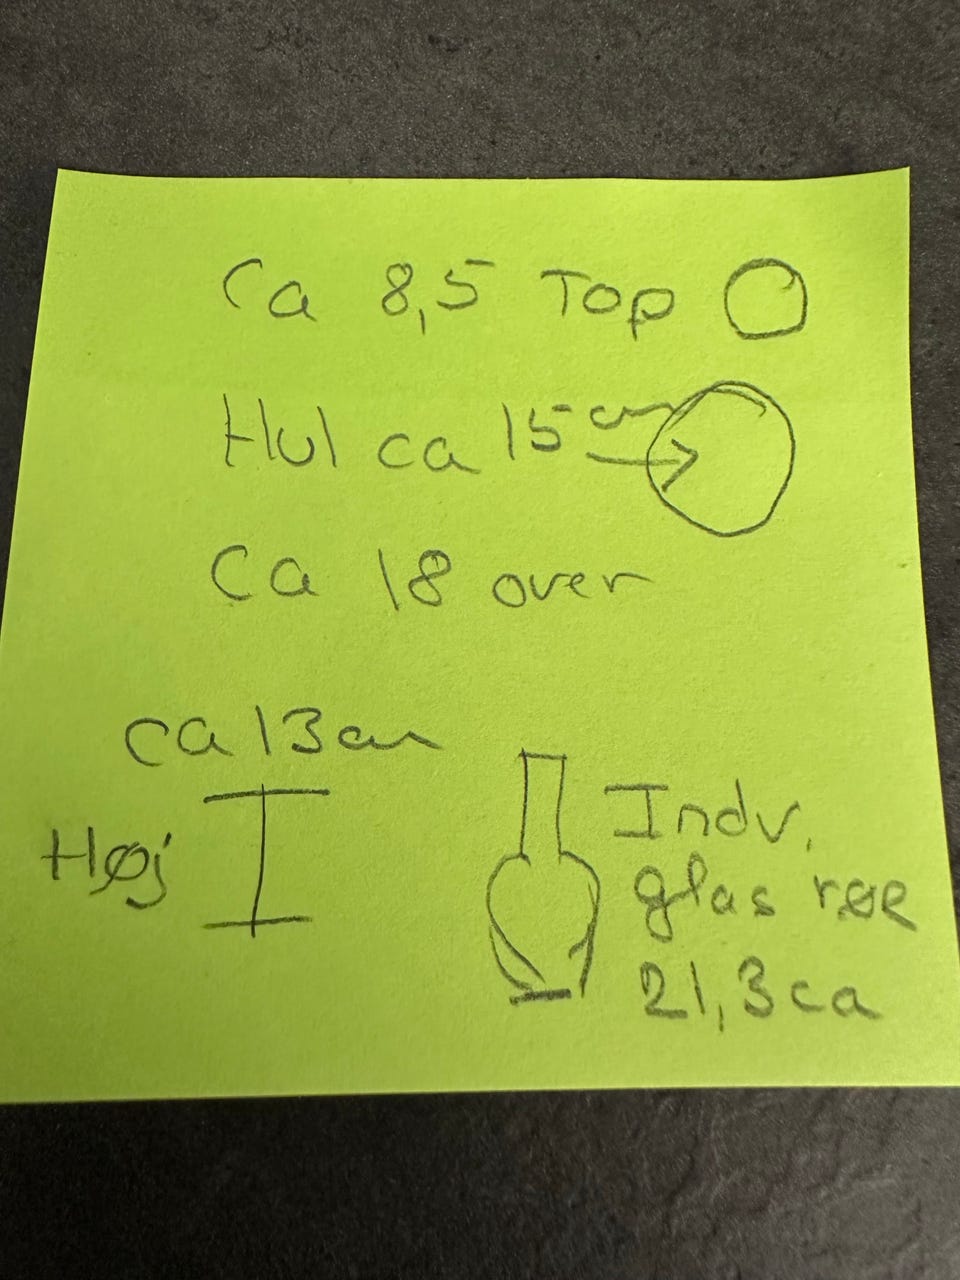 Ca 8,5 Top
Hul ca 15 cm
Ca 18 over
ca 13 cm
Høj
Indv.
glas røe
21,3 ca